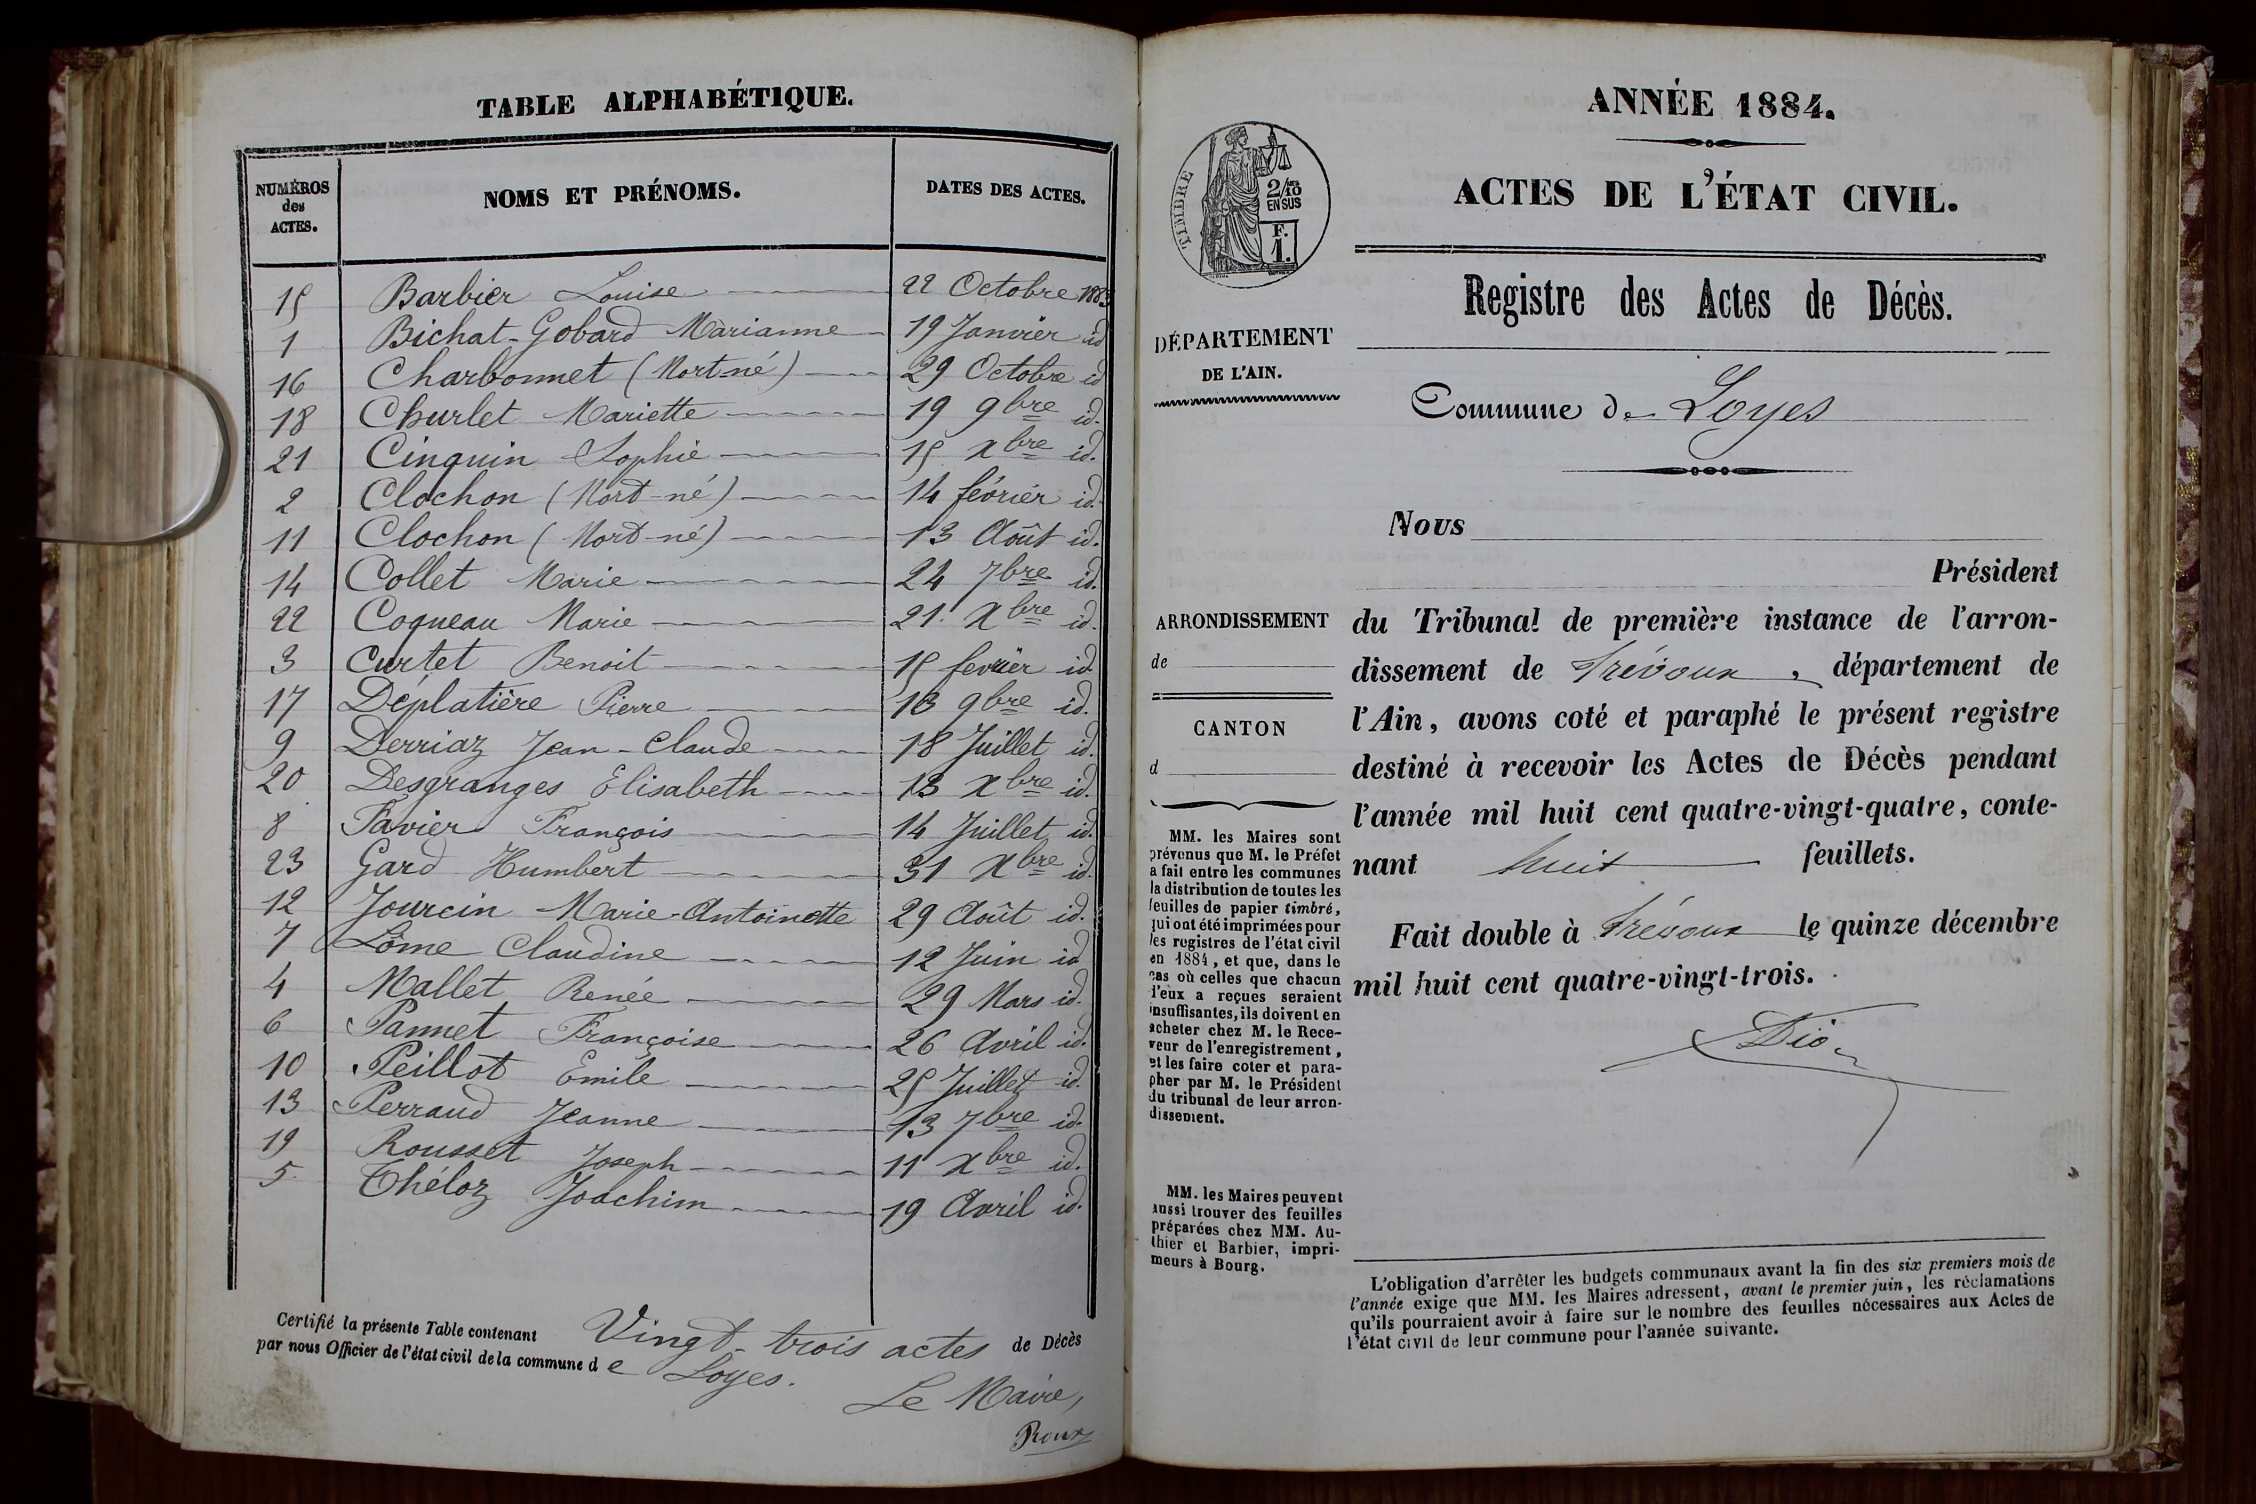 TABLE ALPHABÉTIQUE.
NUMÉROS des ACTES.
NOMS ET PRÉNOMS.
DATES DES ACTES.
15 Barbier Louise 22 Octobre 1883
1 Bichat-Gobard Marianne 19 Janvier id
16 Charbonnet (Mort-né) 29 Octobre id
18 Churlet Mariette 19 9bre id.
21 Cinquin Sophie 15 Xbre id.
2 Clochon (Mort-né) 14 février id.
11 Clochon (Mort-né) 13 Août id.
14 Collet Marie 24 7bre id.
22 Coqueau Marie 21. Xbre id.
3 Curtet Benoit 15 fevrier id.
17 Déplatière Pierre 13 9bre id.
9 Derriaz Jean-Claude 18 Juillet id.
20 Desgranges Elisabeth 13 Xbre id.
8 Favier François 14 Juillet id.
23 Gard Humbert 31 Xbre id.
12 Jourcin Marie-Antoinette 29 Août id.
7 Lôme Claudine 12 Juin id
4 Mallet Renée 29 Mars id.
6 Pannet Françoise 26 Avril id.
10 Peillot Emile 25 Juillet id.
13 Perraud Jeanne 13 7bre id.
19 Rousset Joseph 11 Xbre id.
5 Théloz Joachim 19 Avril id.
Certifié la présente Table contenant Vingt-trois actes de Décès
par nous Officier de l'état civil de la commune de Loyes.
Le Maire,
Roux
ANNÉE 1884.
ACTES DE L'ÉTAT CIVIL.
TIMBRE
2/10
EN SUS
F.
1.
Registre des Actes de Décès.
DÉPARTEMENT
DE L'AIN.
Commune de Loyes
Nous
Président
ARRONDISSEMENT
de
CANTON
d
du Tribunal de première instance de l'arron-
dissement de Trévoux, département de
l'Ain, avons coté et paraphé le présent registre
destiné à recevoir les Actes de Décès pendant
l'année mil huit cent quatre-vingt-quatre, conte-
nant huit feuillets.
Fait double à Trévoux le quinze décembre
mil huit cent quatre-vingt-trois.
MM. les Maires sont
prévenus que M. le Préfet
a fait entre les communes
la distribution de toutes les
feuilles de papier timbré,
qui ont été imprimées pour
les registres de l'état civil
en 1884, et que, dans le
cas où celles que chacun
d'eux a reçues seraient
insuffisantes, ils doivent en
acheter chez M. le Rece-
veur de l'enregistrement,
et les faire coter et para-
pher par M. le Président
du tribunal de leur arron-
dissement.
MM. les Maires peuvent
aussi trouver des feuilles
préparées chez MM. Au-
thier et Barbier, impri-
meurs à Bourg.
L'obligation d'arrêter les budgets communaux avant la fin des six premiers mois de
l'année exige que MM. les Maires adressent, avant le premier juin, les réclamations
qu'ils pourraient avoir à faire sur le nombre des feuilles nécessaires aux Actes de
l'état civil de leur commune pour l'année suivante.